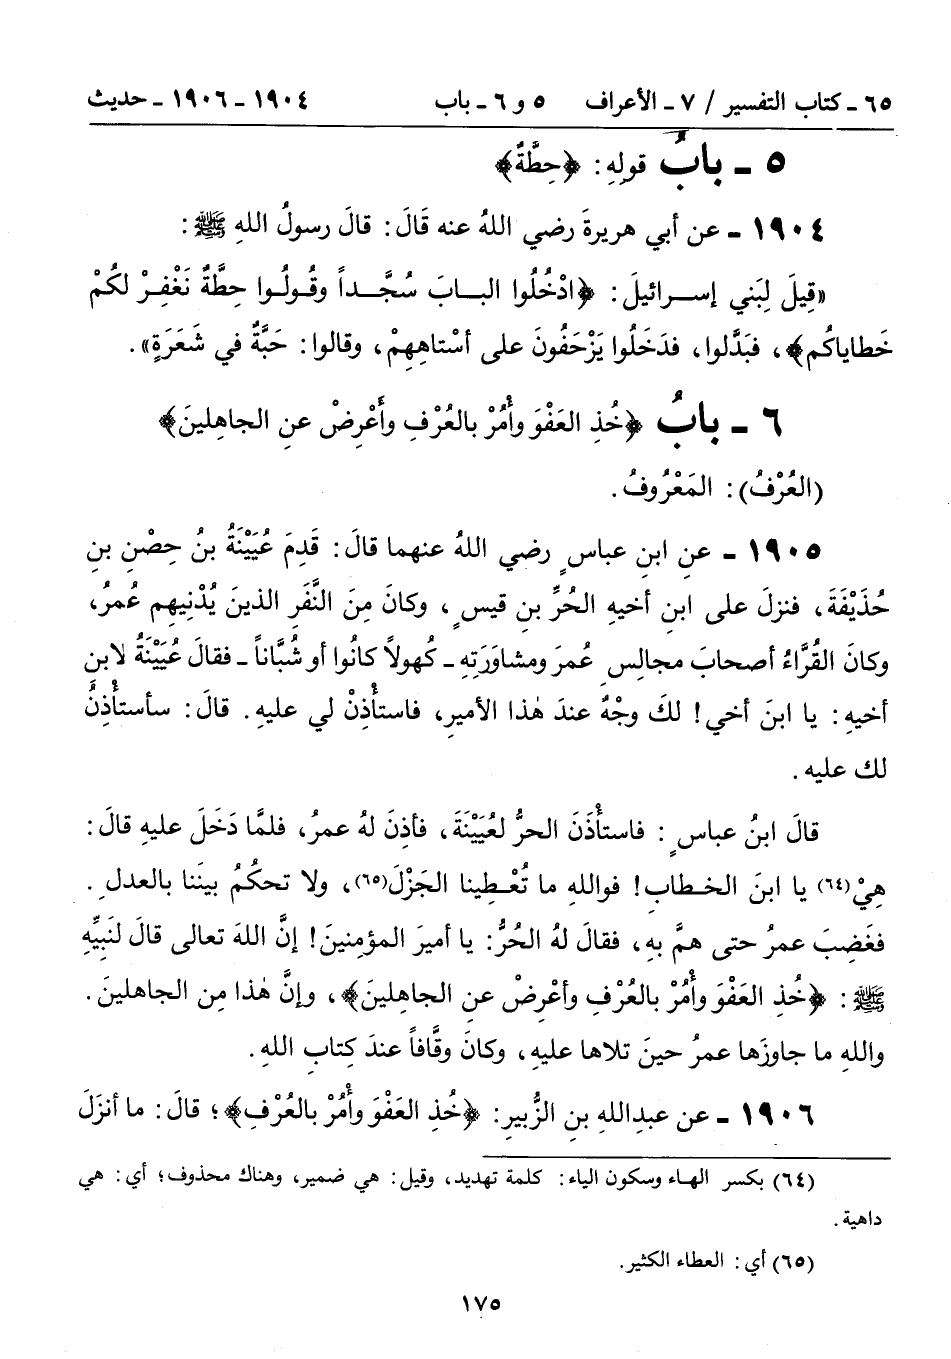 ٦٥ ـ كتاب التفسير / ٧ ـ الأعراف ٥ و ٦ ـ باب ١٩٠٤ ـ ١٩٠٦ ـ حديث
٥ ـ بابُ قولِهِ: ﴿حِطَّةٌ﴾
١٩٠٤ ـ عن أبي هريرةَ رضي اللهُ عنه قَالَ: قالَ رسولُ اللهِ ﷺ:
«قِيلَ لِبَني إســرائيلَ: ﴿ادْخُلُوا البـابَ سُجَّـداً وقُـولُـوا حِطَّةٌ نَغْفِـرْ لكُمْ
خَطاياكُم﴾، فبَدَّلوا، فدَخَلُوا يَزْحَفُونَ على أسْتاهِهِمْ، وقالوا: حَبَّةٌ في شَعَرَةٍ».
٦ ـ بابُ ﴿خُذِ العَفْوَ وأْمُرْ بالعُرْفِ وأَعْرِضْ عنِ الجاهلينَ﴾
(العُرْفُ): المَعْرُوفُ.
١٩٠٥ ـ عنِ ابنِ عباسٍ رضي اللهُ عنهما قالَ: قَدِمَ عُيَيْنَةُ بنُ حِصْنِ بنِ
حُذَيْفَةَ، فنزلَ على ابنِ أخيهِ الحُرِّ بنِ قيسٍ، وكانَ مِنَ النَّفَرِ الذينَ يُدْنِيهِم عُمرُ،
وكانَ القُرَّاءُ أصحابَ مجالِسِ عُمرَ ومشاوَرَتِهِ ـ كُهولاً كانُوا أو شُبَّاناً ـ فقالَ عُيَيْنَةُ لابنِ
أخيهِ: يا ابنَ أخي! لكَ وجْهٌ عندَ هٰذا الأميرِ، فاستأْذِنْ لي عليهِ. قالَ: سأستأْذِنُ
لك عليه.
قالَ ابنُ عباسٍ: فاستأْذَنَ الحرُّ لعُيَيْنَةَ، فأذِنَ لهُ عمرُ، فلمَّا دَخَلَ عليهِ قالَ:
هِيْ(٦٤) يا ابنَ الخـطابِ! فواللهِ ما تُعْـطِينا الجَزْلَ(٦٥)، ولا تحكُمُ بينَنا بالعدلِ.
فغَضِبَ عمرُ حتى همَّ بهِ، فقالَ لهُ الحُرُّ: يا أميرَ المؤمِنينَ! إنَّ اللهَ تعالى قالَ لنَبيِّهِ
ﷺ: ﴿خُذِ العَفْوَ وأْمُرْ بالعُرْفِ وأعْرِضْ عنِ الجاهلينَ﴾، وإنَّ هٰذا مِن الجاهلينَ.
واللهِ ما جاوزَها عمرُ حينَ تلاها عليهِ، وكانَ وقَّافاً عندَ كِتابِ اللهِ.
١٩٠٦ ـ عن عبدِاللهِ بنِ الزُّبيرِ: ﴿خُذِ العَفْوَ وأْمُرْ بالعُرْفِ﴾؛ قالَ: ما أنزَلَ
(٦٤) بكسر الهـاء وسكون الياء: كلمة تهديد، وقيل: هي ضمير، وهناك محذوف؛ أي: هي
داهية.
(٦٥) أي: العطاء الكثير.
١٧٥